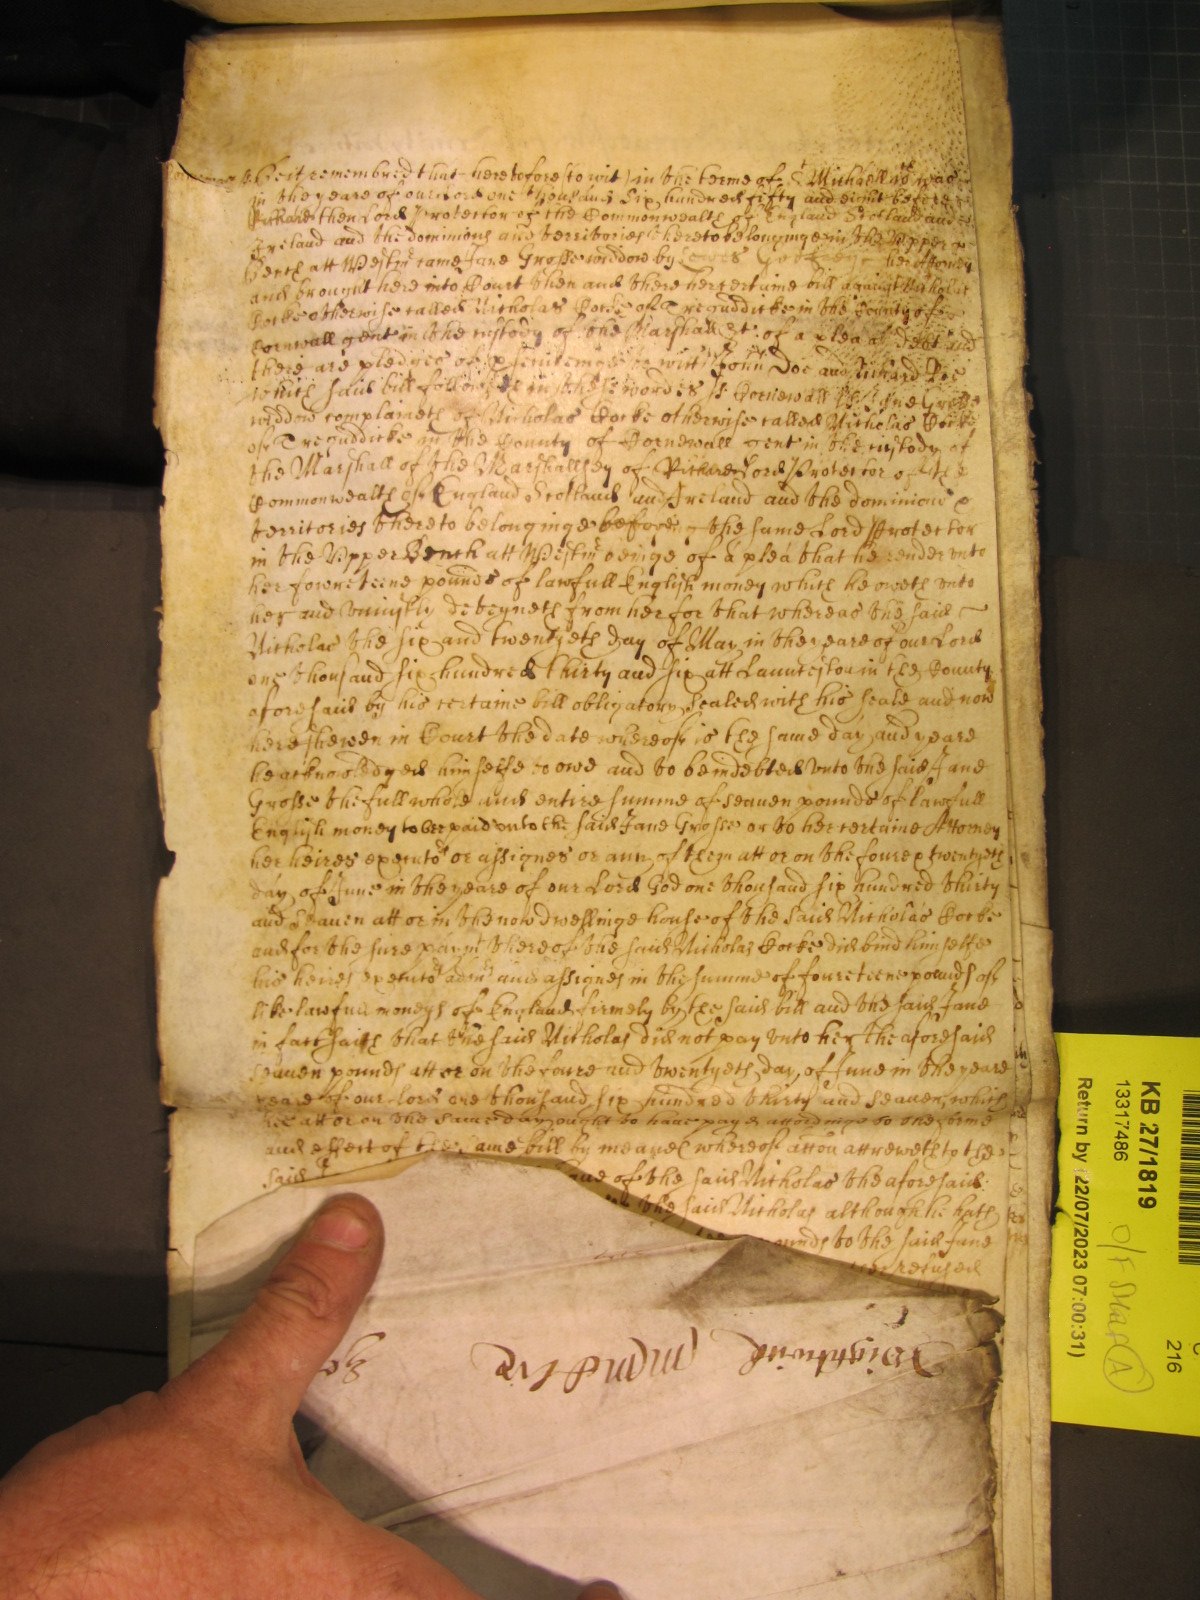 Cornewall ss Bee it remembred that heretofore (to wit) in the terme of St Michaell wch was
in the yeare of our Lord one thousand six hundred fifty and eight before
Richard then Lord Protector of the Commonwealth of England Scotland and
Ireland and the dominions and territories thereto belonginge in the Upper
Bench att Westmr came Jane Grosse widdow by Lewes her Attorney
and brought here into Court then and there her certaine bill against Nicholas
Cocke otherwise called Nicholas Cocke of Treguddicke in the County of
Cornwall gent in the custody of the Marshall &c of a plea of debt and
there are pledges of prosecution to witt John Doe and Richard Roe
which said bill followeth in these wordes ss Cornewall ss Jane Grosse
widdow complaineth of Nicholas Cocke otherwise called Nicholas Cocke
of Treguddicke in the County of Cornewall gent in the custody of
the Marshall of the Marshallsey of Richard Lord Protector of the
Commonwealth of England Scotland and Ireland and the dominions &
territories thereto belonginge before the same Lord Protector
in the Upper Bench att Westmr beinge of a plea that he render unto
her fowreteene pounds of lawfull English money which he oweth unto
her and uniustly deteyneth from her for that whereas the said
Nicholas the six and twentyeth day of May in the yeare of our Lord
one thousand six hundred thirty and six att Launceston in the County
aforesaid by his certaine bill obligatory sealed with his seale and now
here shewen in Court the date whereof is the same day and yeare
he acknowledged himselfe to owe and to be indebted unto the said Jane
Grosse the full whole and entire summe of seaven pounds of lawfull
English money to bee paid unto the said Jane Grosse or to her certaine Attorney
her heires executors or assignes or any of them att or on the foure & twentyeth
day of June in the yeare of our Lord God one thousand six hundred thirty
and seaven att or in the now dwellinge house of the said Nicholas Cocke
and for the sure paymt thereof the said Nicholas Cocke did bind himselfe
his heires executors admrs and assignes in the summe of foureteene pounds of
like lawfull moneys of England firmely by the said bill and the said Jane
in fact saith that the said Nicholas did not pay unto her the aforesaid
seaven pounds att or on the foure and twentyeth day of June in the yeare
yeare of our lord one thousand six hundred thirty and seaven, which
hee att or on the same day ought to have payd accordinge to the forme
and effect of the same bill by meanes whereof accon accreweth to the
said of the said Nicholas the aforesaid
the said Nicholas although he hath
pounds to the said Jane
refused
Wightwick
KB 27/1819
13317486
Return by (22/07/2023 07:00:31)
O/F
A
216